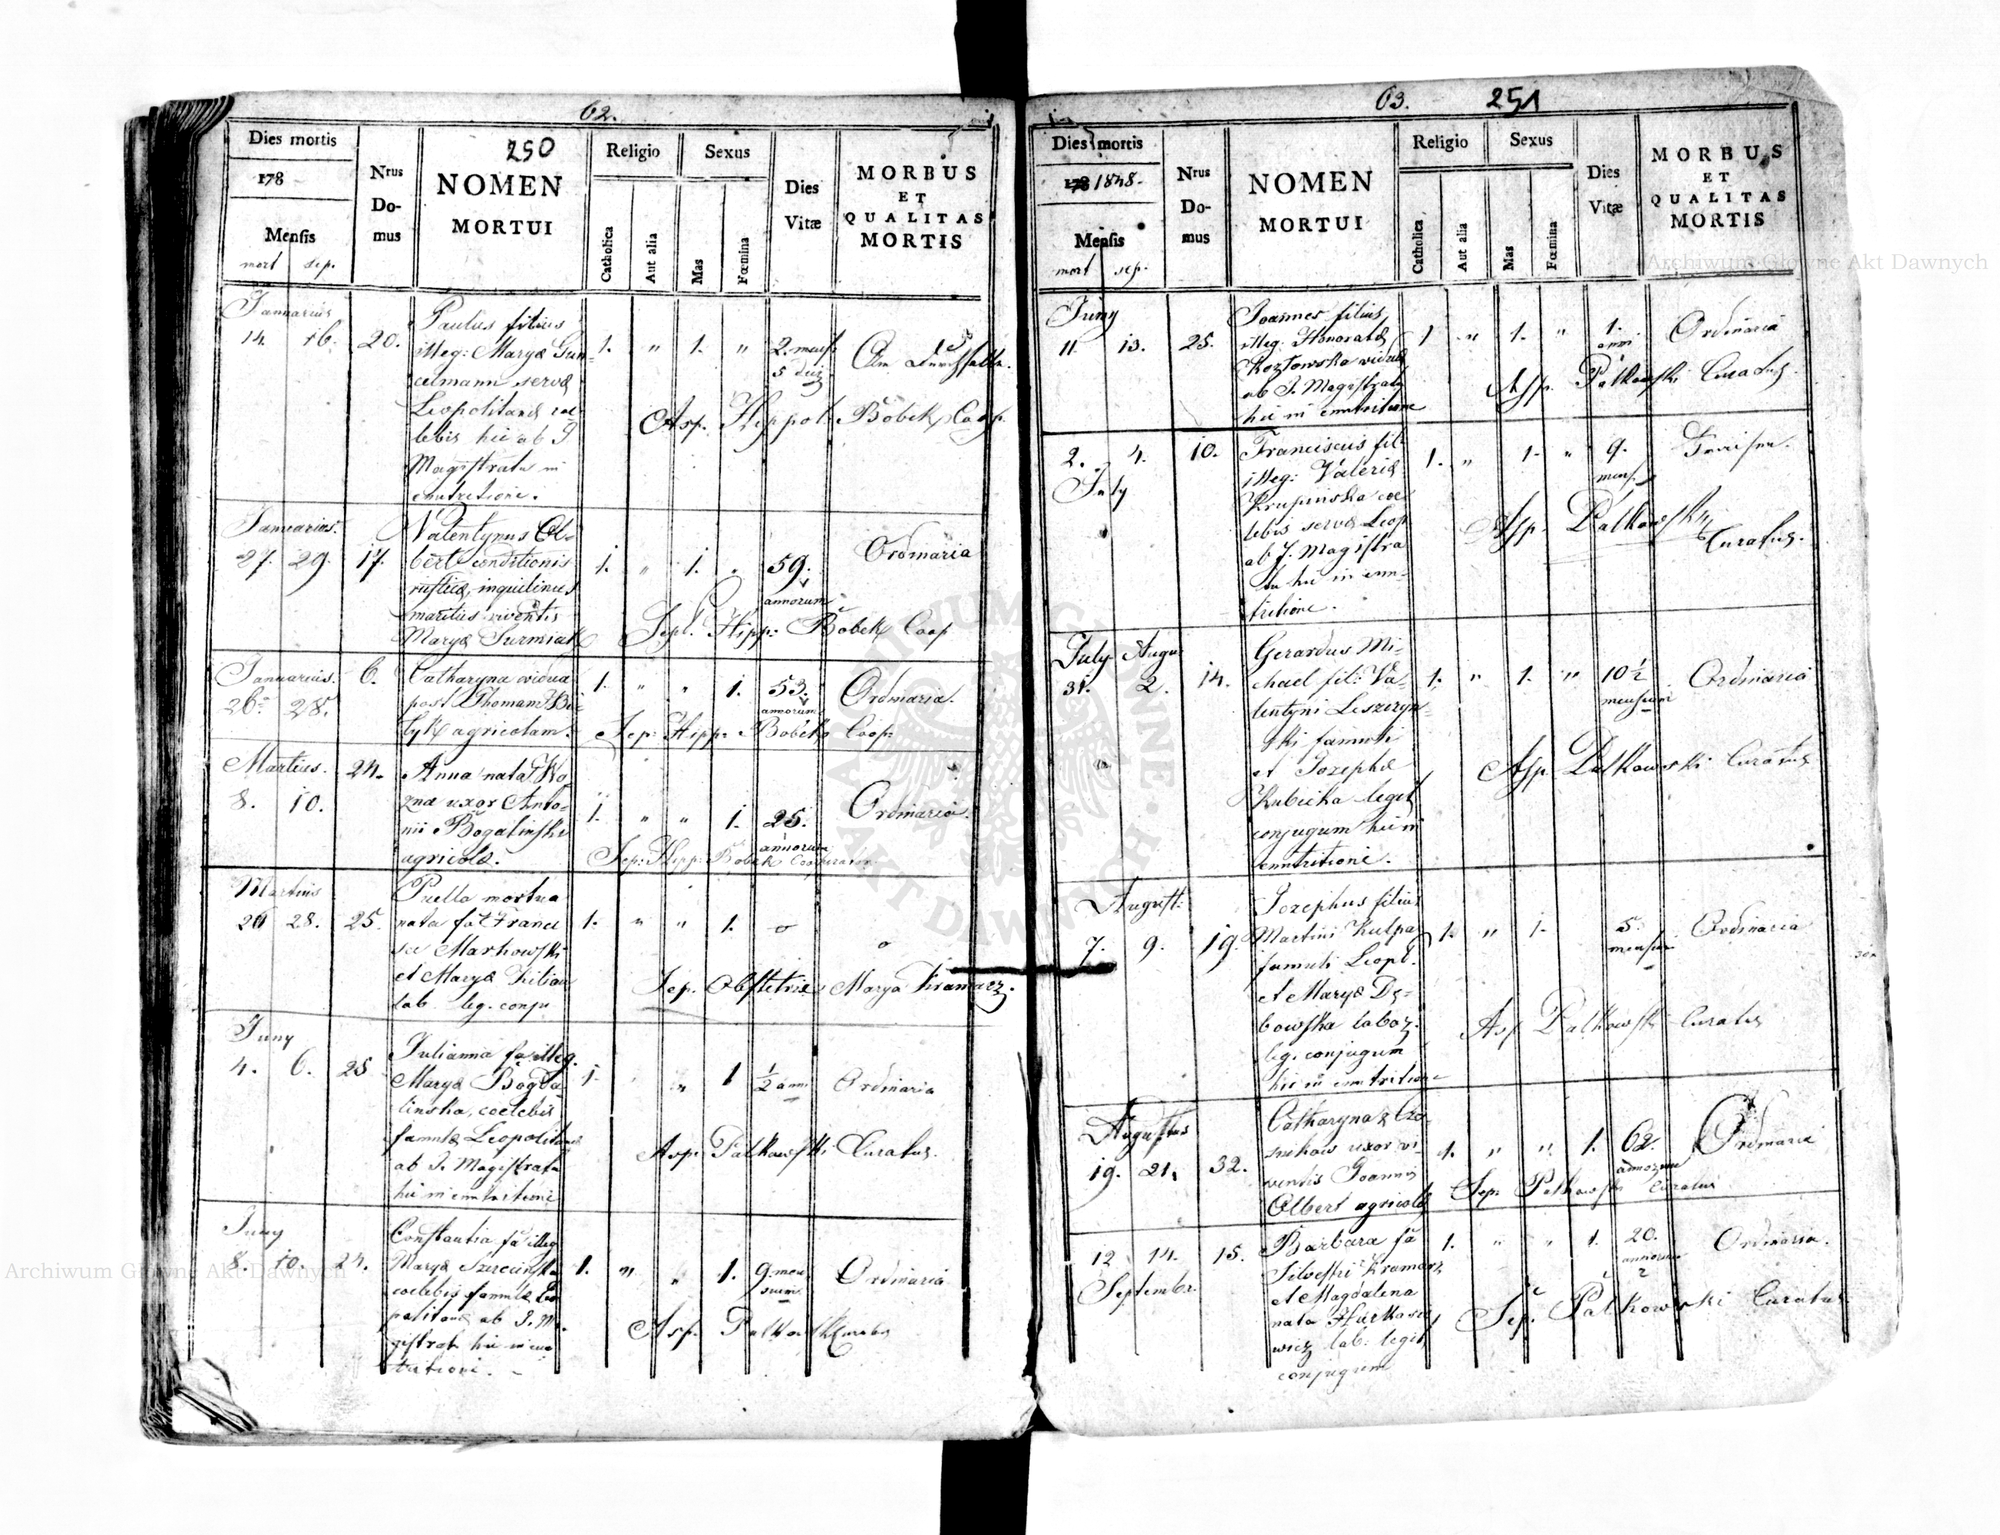 62.
250
Dies mortis
178
Mensis
mort sep.
Nrus
Do-
mus
NOMEN
MORTUI
Religio
Catholica
Aut alia
Sexus
Mas
Fœmina
Dies
Vitæ
MORBUS
ET
QUALITAS
MORTIS
Januarius
14. 16. 20.
Paulus filius
illeg: Maryæ Gun-
celmann servæ
Leopolitanæ cæ-
lebis hic ab I
Magistratu in
enutritione.
1. " 1. " 2. mens.
5 dies
Asp. Hippol. Bobek Coop.
Januarius.
27. 29. 17.
Valentynus Ol-
bert conditionis
rusticæ, inquilinus
maritus viventis
Maryæ Surmiak
1. " 1. " 59.
annorum
Ordinaria
Sepl. Hipp: Bobek Coop
Januarius.
26. 28. 6.
Catharyna vidua
post Thomam
agricolam.
1. " " 1. 53.
annorum
Ordinaria.
Sep: Hipp: Bobek Coop.
Martius. 24.
8. 10.
Anna nata Wo
zna uxor Anto-
nii Bogalinski
agricolæ.
1. " " 1. 25.
annorum
Ordinaria.
Sep: Hipp: Bobek Cooperator
Martius
28. 25.
Puella mortua
nata fa Franci
sci Markowski
et Maryæ Kilian
lab. leg. conju
1. " " 1. o
o
Sep. Obstetrix Marya Kramarz.
Juny
4. 6. 25
Julianna fa illeg.
Maryæ Bogda
linska, coelebis
famulæ Leopolitanæ
ab I. Magistratu
hic in enutritione
1. " " 1 ½ ann
Ordinaria
Asp. Palkowski Curatus.
Juny
8. 10. 24.
Constantia fa illeg
Maryæ
coelebis famulæ Leo
politanæ ab I. Ma
gistrat hic in enu
tritioni.
1. " " 1. 9 men
sium
Ordinaria
Asp. Palkowski Curatus
63. 251
Dies mortis
178 1848.
Mensis
mort sep.
Nrus
Do-
mus
NOMEN
MORTUI
Religio
Catholica
Aut alia
Sexus
Mas
Fœmina
Dies
Vitæ
MORBUS
ET
QUALITAS
MORTIS
Juny
11. 13. 25.
Joannes filius
illeg: Honoratæ
Kozłowska viduæ
ab I. Magistratu
hic in enutritione
1 " 1. " 1.
anni
Ordinaria
Asp. Palkowski Curatus.
2. 4. 10.
July
Franciscus fil.
illeg: Valeriæ
Krupinska coe
lebis servæ Leop
ab I. Magistra
tu hic in enu-
tritione.
1. " 1. " 9.
mens.
Asp. Palkowski
Curatus.
July Augu
31. 2. 14.
Gerardus Mi-
chael fil: Va-
lentyni Leszczyn-
ski famuli
et Jozephæ
Kubicka legit
conjugum hic in
enutritioni.
1. " 1. " 10½
mensium
Ordinaria
Asp. Palkowski Curatus
August:
7. 9. 19.
Jozephus filius
Martini Kulpa
famuli Leopl.
et Maryæ Dę-
bowska laboz.
leg. conjugum
hic in enutritione
1. " 1. 5.
mensium
Ordinaria
Asp Palkowski Curatus
Augustus
19. 21. 32.
Catharyna
uxor vi-
ventis Joannis
Olbert agricolæ
1. " " 1. 62.
annorum
Ordinaria
Sep. Palkowski Curatus
12 14. 15.
September
Barbara fa
Silvestri Kramarz
et Magdalena
nata Hurkowie
wicz lab. legit
conjugum
1. " " 1. 20.
annorum
2
Ordinaria.
Sep. Palkowski Curatus
Archiwum Główne Akt Dawnych
Archiwum Główne Akt Dawnych
ARCHIWUM GŁÓWNE AKT DAWNYCH